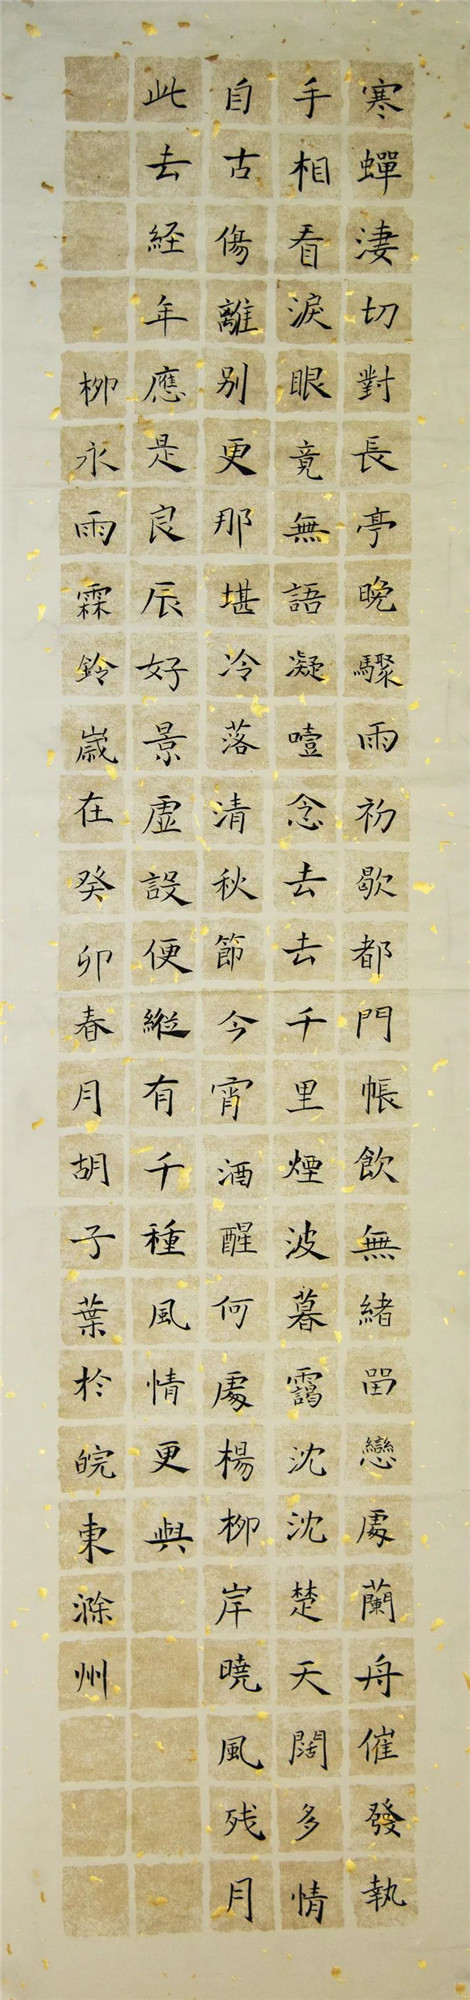 寒蟬淒切對長亭晚驟雨初歇都門帳飲無緒留戀處蘭舟催發執
手相看淚眼竟無語凝噎念去去千里煙波暮靄沈沈楚天闊多情
自古傷離別更那堪冷落清秋節今宵酒醒何處楊柳岸曉風残月
此去経年應是良辰好景虛設便縱有千種風情更與
柳永雨霖鈴歲在癸卯春月胡子葉於皖東滁州